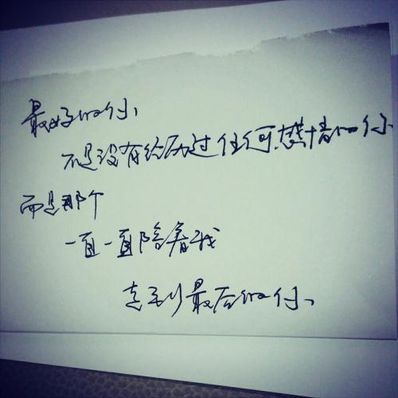 最好的你、
不是没有经历过任何感情的你
而是那个
一直一直陪着我
走到最后的你、